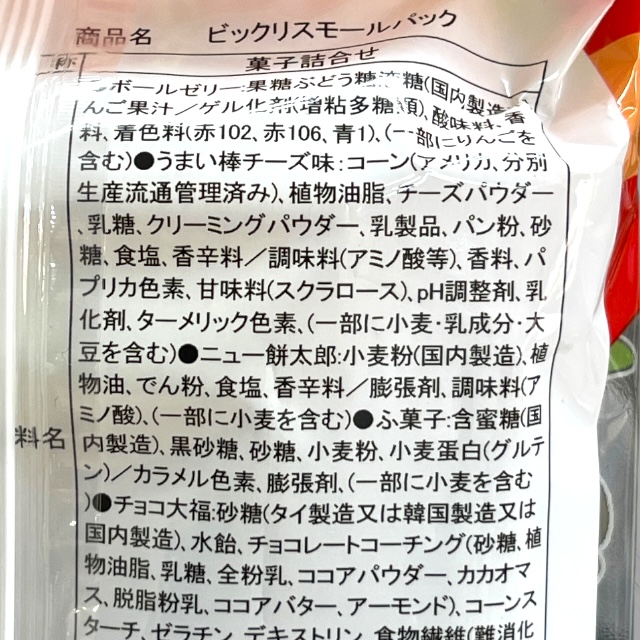 商品名 ビックリスモールパック
称 菓子詰合せ
ボールゼリー:果糖ぶどう糖液糖(国内製造)、
んご果汁/ゲル化剤(増粘多糖類)、酸味料、香
料、着色料(赤102、赤106、青1)、(一部にりんごを
含む)●うまい棒チーズ味:コーン(アメリカ、分別
生産流通管理済み)、植物油脂、チーズパウダー
、乳糖、クリーミングパウダー、乳製品、パン粉、砂
糖、食塩、香辛料/調味料(アミノ酸等)、香料、パ
プリカ色素、甘味料(スクラロース)、pH調整剤、乳
化剤、ターメリック色素、(一部に小麦・乳成分・大
豆を含む)●ニュー餅太郎:小麦粉(国内製造)、植
物油、でん粉、食塩、香辛料/膨張剤、調味料(ア
ミノ酸)、(一部に小麦を含む)●ふ菓子:含蜜糖(国
料名 内製造)、黒砂糖、砂糖、小麦粉、小麦蛋白(グルテ
ン)/カラメル色素、膨張剤、(一部に小麦を含む
)●チョコ大福:砂糖(タイ製造又は韓国製造又は
国内製造)、水飴、チョコレートコーチング(砂糖、植
物油脂、乳糖、全粉乳、ココアパウダー、カカオマ
ス、脱脂粉乳、ココアバター、アーモンド)、コーンス
ターチ、ゼラチン、デキストリン、食物繊維(難消化